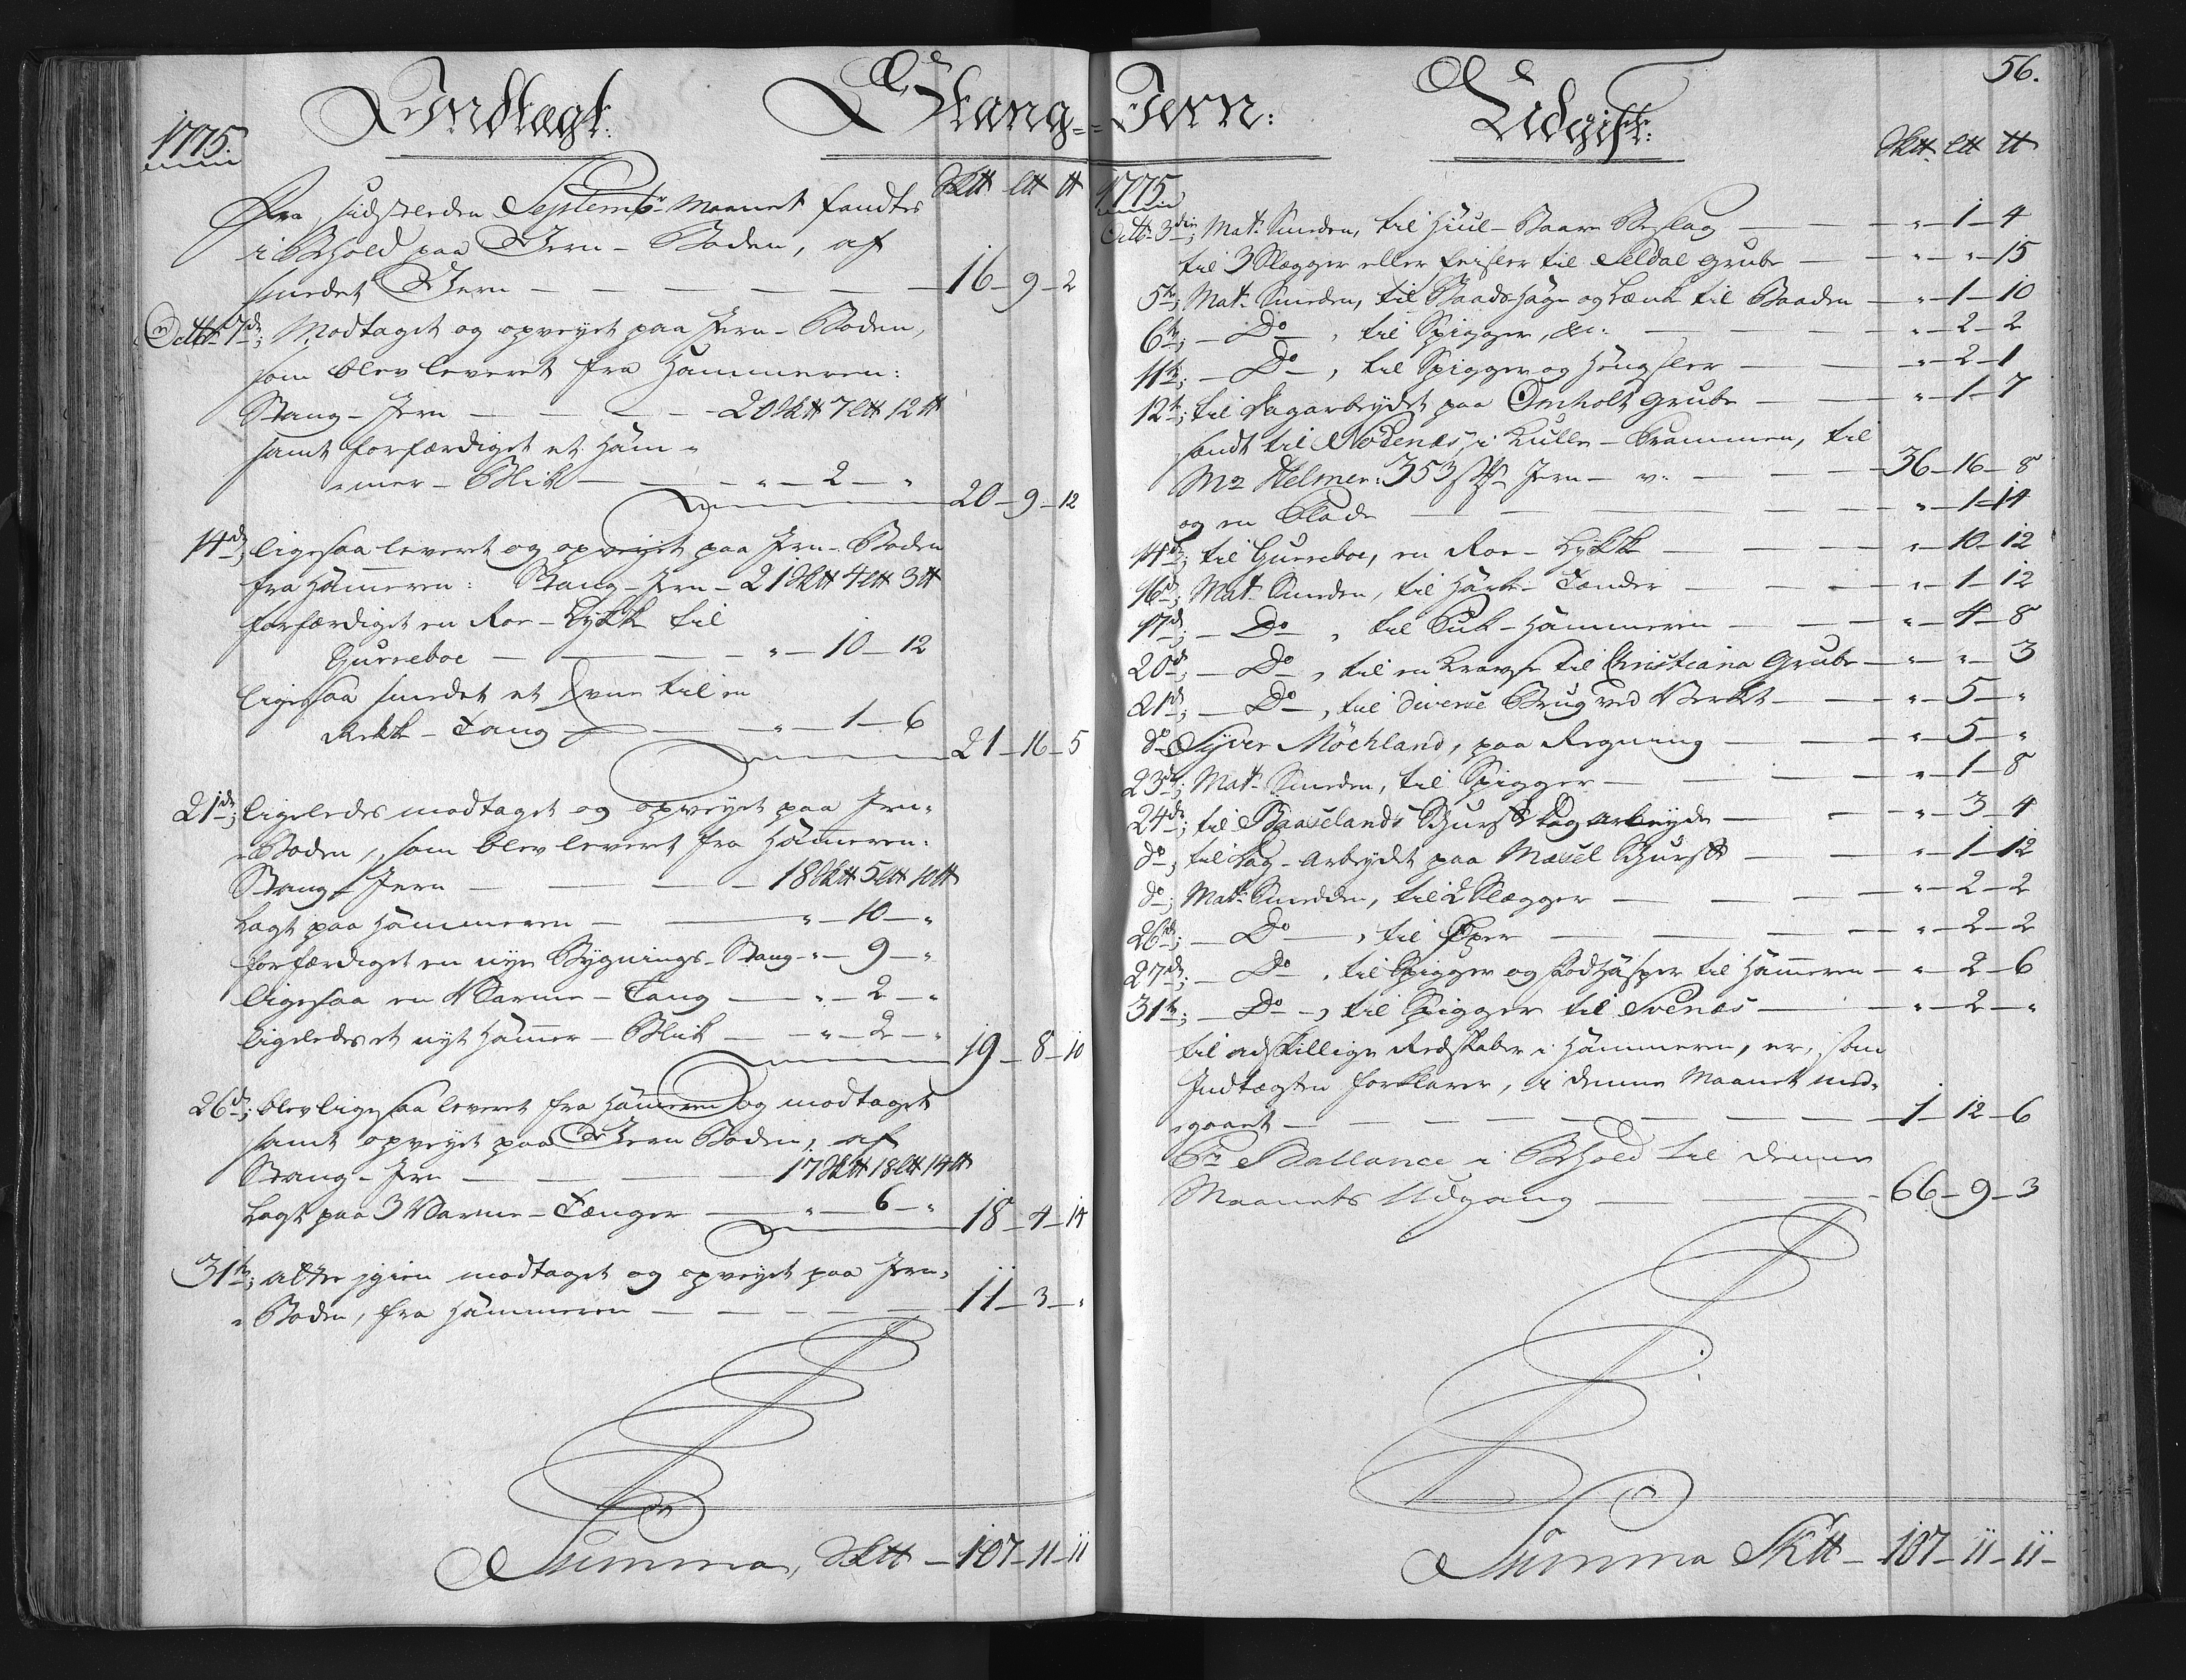 Indtægt:
Stang-
1775.
Sk℔ L℔ ℔
Fra sidstleeden Septembr: Maanet fandtes
i Behold paa Jern-Boden, af
smedet Jern — 16 — 9 — 2
Octbr 7de; Modtaget og opveyet paa Jern-Boden,
som blev leveret fra Hammeren:
Stang-Jern — 20 Sk℔ 7 L℔ 12 ℔
samt forfærdiget et Ham-
mer-Blik — " — 2 — "
20 — 9 — 12
14de; ligesaa leveret og opveyet paa Jern-Boden
fra Hammeren: Stang-Jern — 21 Sk℔ 4 L℔ 3 ℔
forfærdiget en Roe-Lykke til
Gurreboe — " — 10 — 12
ligesaa smedet et til en
Rekk-Tang — " — 1 — 6
21 — 16 — 5
21de; ligeledes modtaget og opveyet paa Jern-
Boden, som blev leveret fra Hammeren:
Stang-Jern — 18 Sk℔ 5 L℔ 10 ℔
Lagt paa Hammeren — " — 10 — "
forfærdiget en nye Bygnings-Stang — " — 9 — "
ligesaa en Varme-Tang — " — 2 — "
ligeledes et nyt Hammer-Blik — " — 2 — "
19 — 8 — 10
26de; blev ligesaa leveret fra Hammeren og modtaget
samt opveyet paa Jern Boden, af
Stang-Jern — 17 Sk℔ 18 L℔ 14 ℔
Lagt paa 3 Varme-Tænger — " — 6 — "
18 — 4 — 14
31te; atter igien modtaget og opveyet paa Jern-
Boden, fra Hammeren — 11 — 3 — "
Summa, Sk℔ — 107 — 11 — 11
56.
Jern:
Udgift:
Sk℔ L℔ ℔
1775
Octbr 3die; Matr. Smeden, til Hiul-Baare Beslag — " — 1 — 4
til 3 Slægger eller Feisler til Seldal Grube — " — " — 15
5te; Matr. Smeden, til Baadshage og Lænk til Baaden — " — 1 — 10
6te; — Do —, til Spigger, &c. — " — 2 — 2
11te; — Do —, til Spigger og Hengsler — " — 2 — 1
12te; til Dagarbeydet paa Omholt Grube — " — 1 — 7
sendt til Nødenæs, i Kulle-Prammen, til
Mr Helmer: 353 Jern — v. — 36 — 16 — 8
og en Plade — " — 1 — 14
14de; til Gurreboe, en Roe-Lykke — " — 10 — 12
16de; Matr. Smeden, til Harke-Tænder — " — 1 — 12
17de; — Do —, til Huk-Hammeren — " — 4 — 8
20de; — Do —, til en Kravse til Christiana Grube — " — " — 3
21de; — Do —, til diverse Brug ved Verket — " — 5 — "
do Syver Møchland, paa Regning — " — 5 — "
23de; Matr. Smeden, til Spigger — " — 1 — 8
24de; til Baaselands Skurf Dag arbeyde — " — 3 — 4
do; til Dag-Arbeydet paa Mæsel Skurf — " — 1 — 12
do; Matr. Smedden, til 2 Slægger — " — 2 — 2
26de; — Do —, til — " — 2 — 2
27de; — Do —, til Spigger og Hasper til Hammeren — " — 2 — 6
31te; — Do —, til Spigger til Svenæs — " — 2 — "
til adskillige Redskaber i Hammeren, er, som
Indtægten forklarer, i denne Maanet med-
gaaet — 1 — 12 — 6
Pr Ballance i Behold til denne
Maanets Udgang — 66 — 9 — 3
Summa Sk℔ — 107 — 11 — 11 —